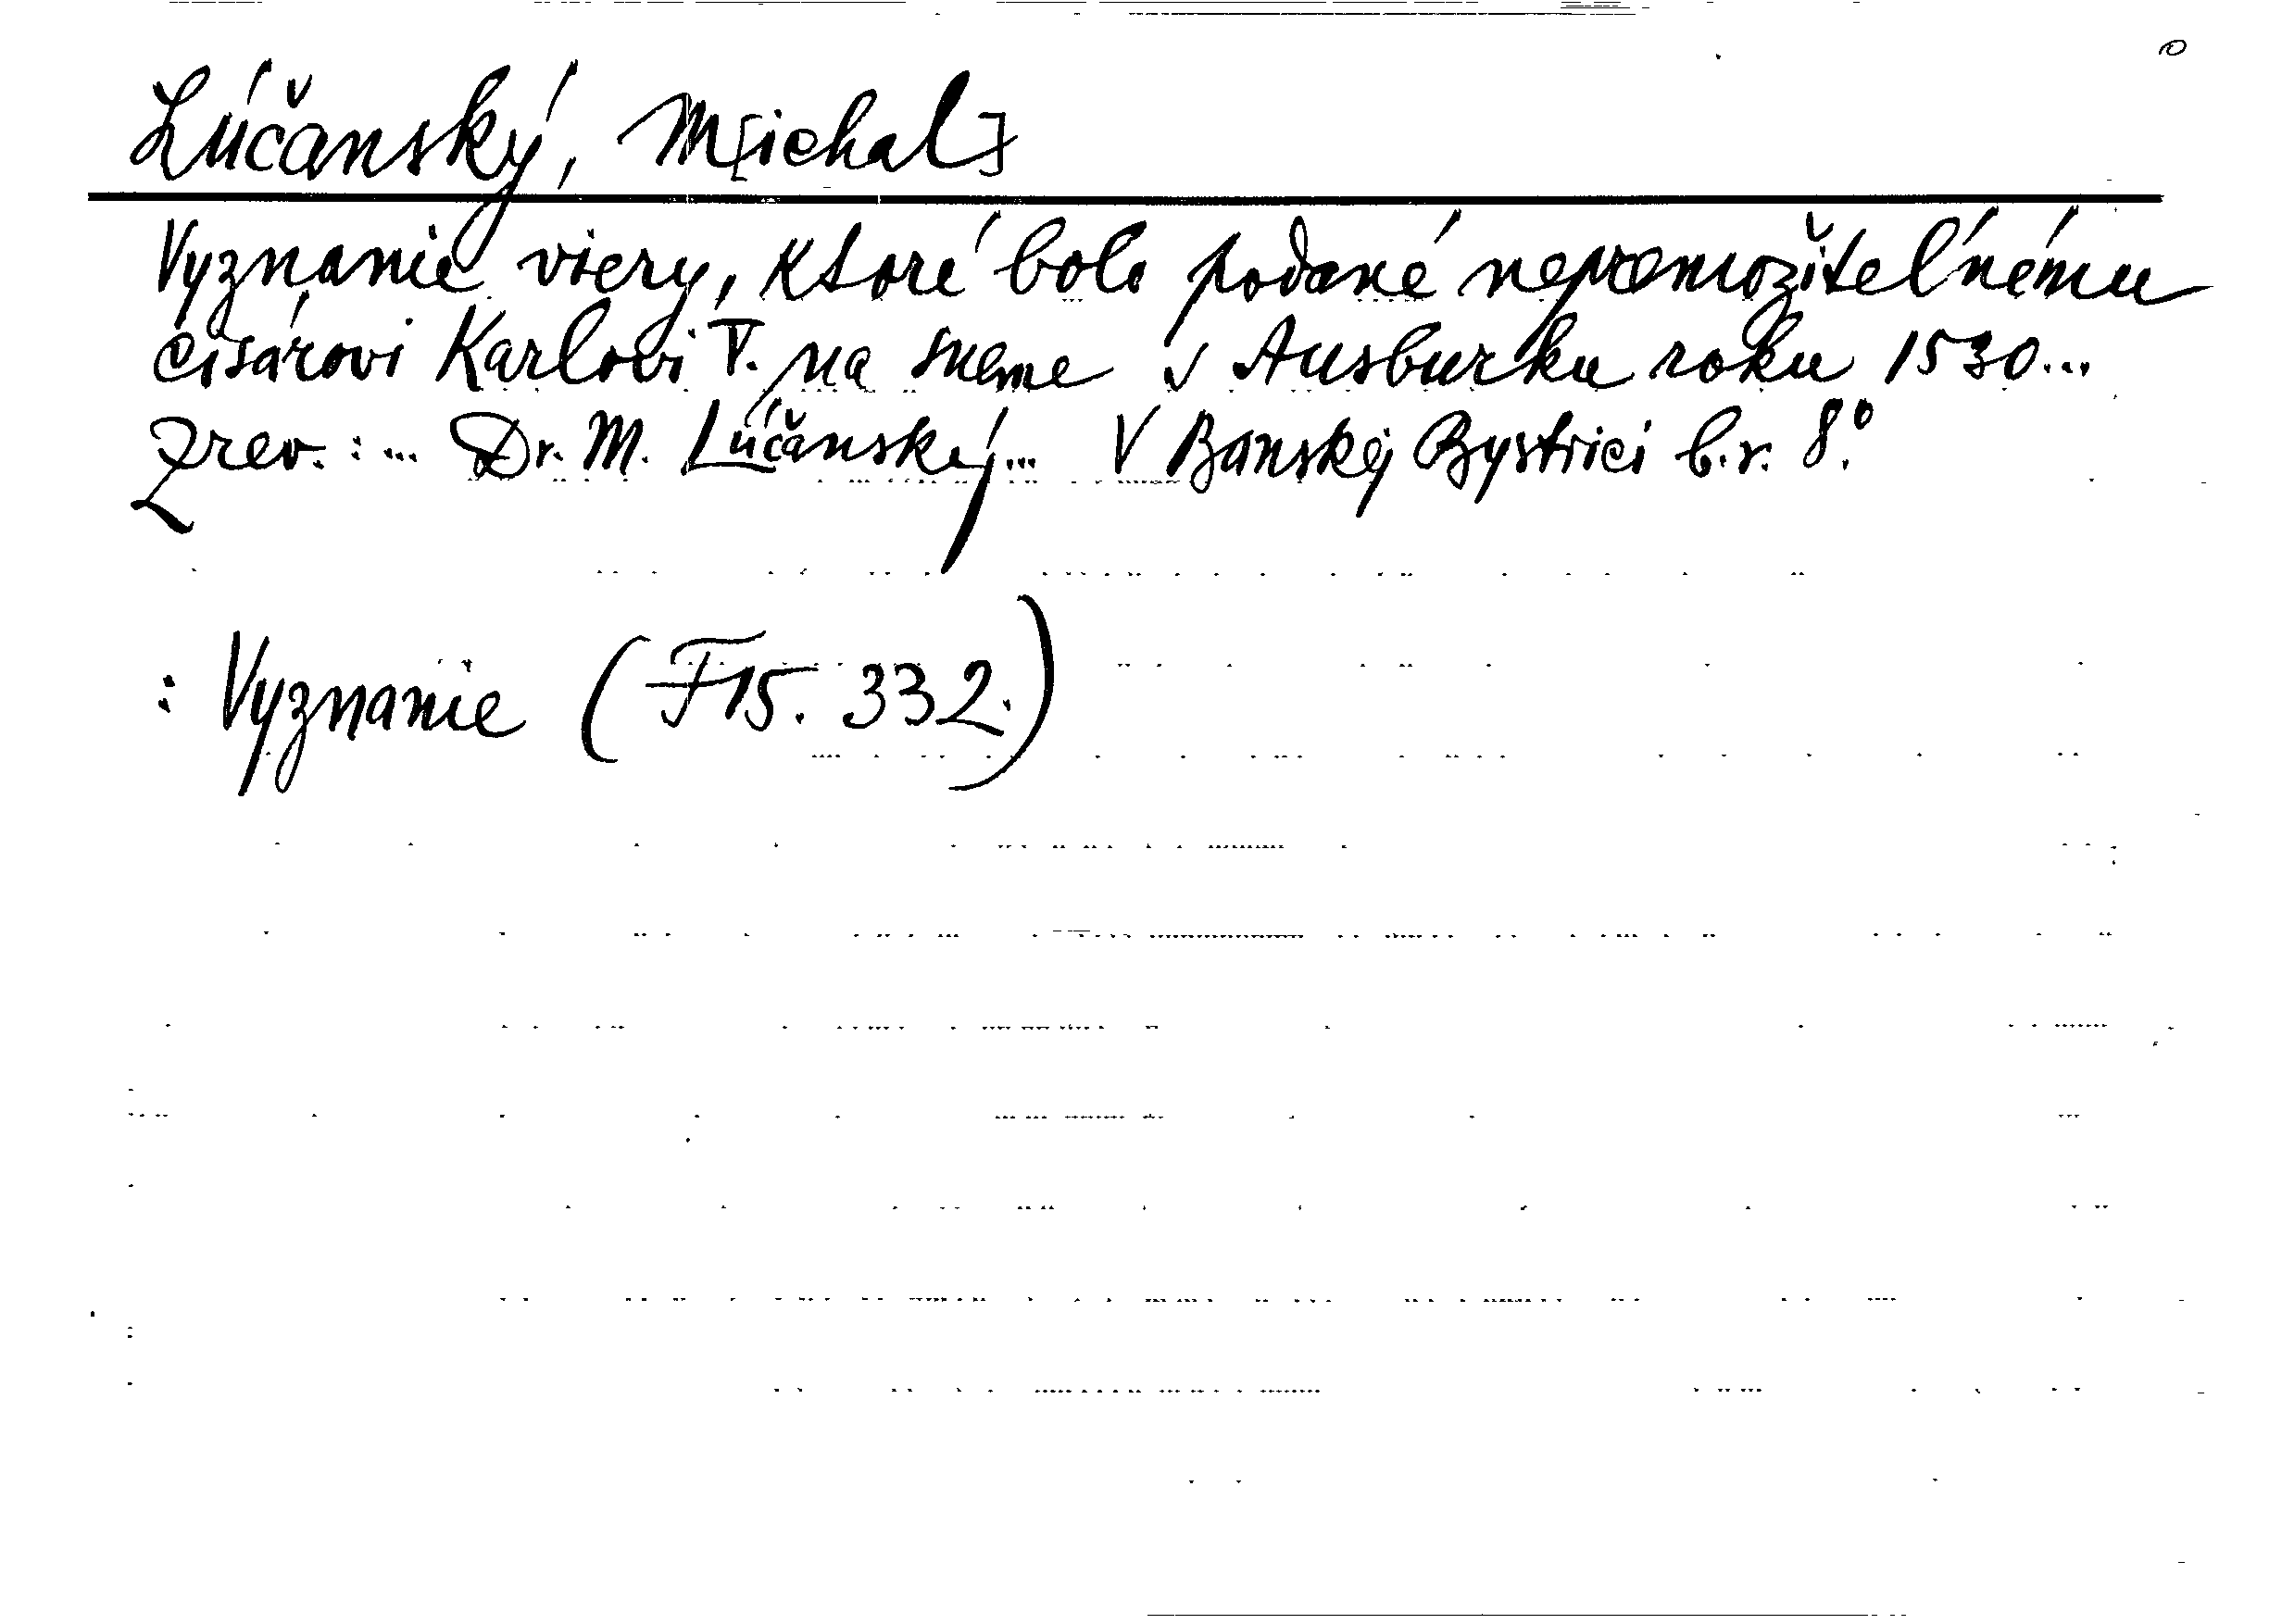 Lúčanský, M[ichal]
Vyznanie viery, ktoré bolo podané nepremožiteľnému
cisárovi Karlovi V. na sneme v Ausburku roku 1530...
Zrev. : ... Dr. M. Lúčanský ... V Banskej Bystrici b.r. 8°.
: Vyznanie (F15. 332.)